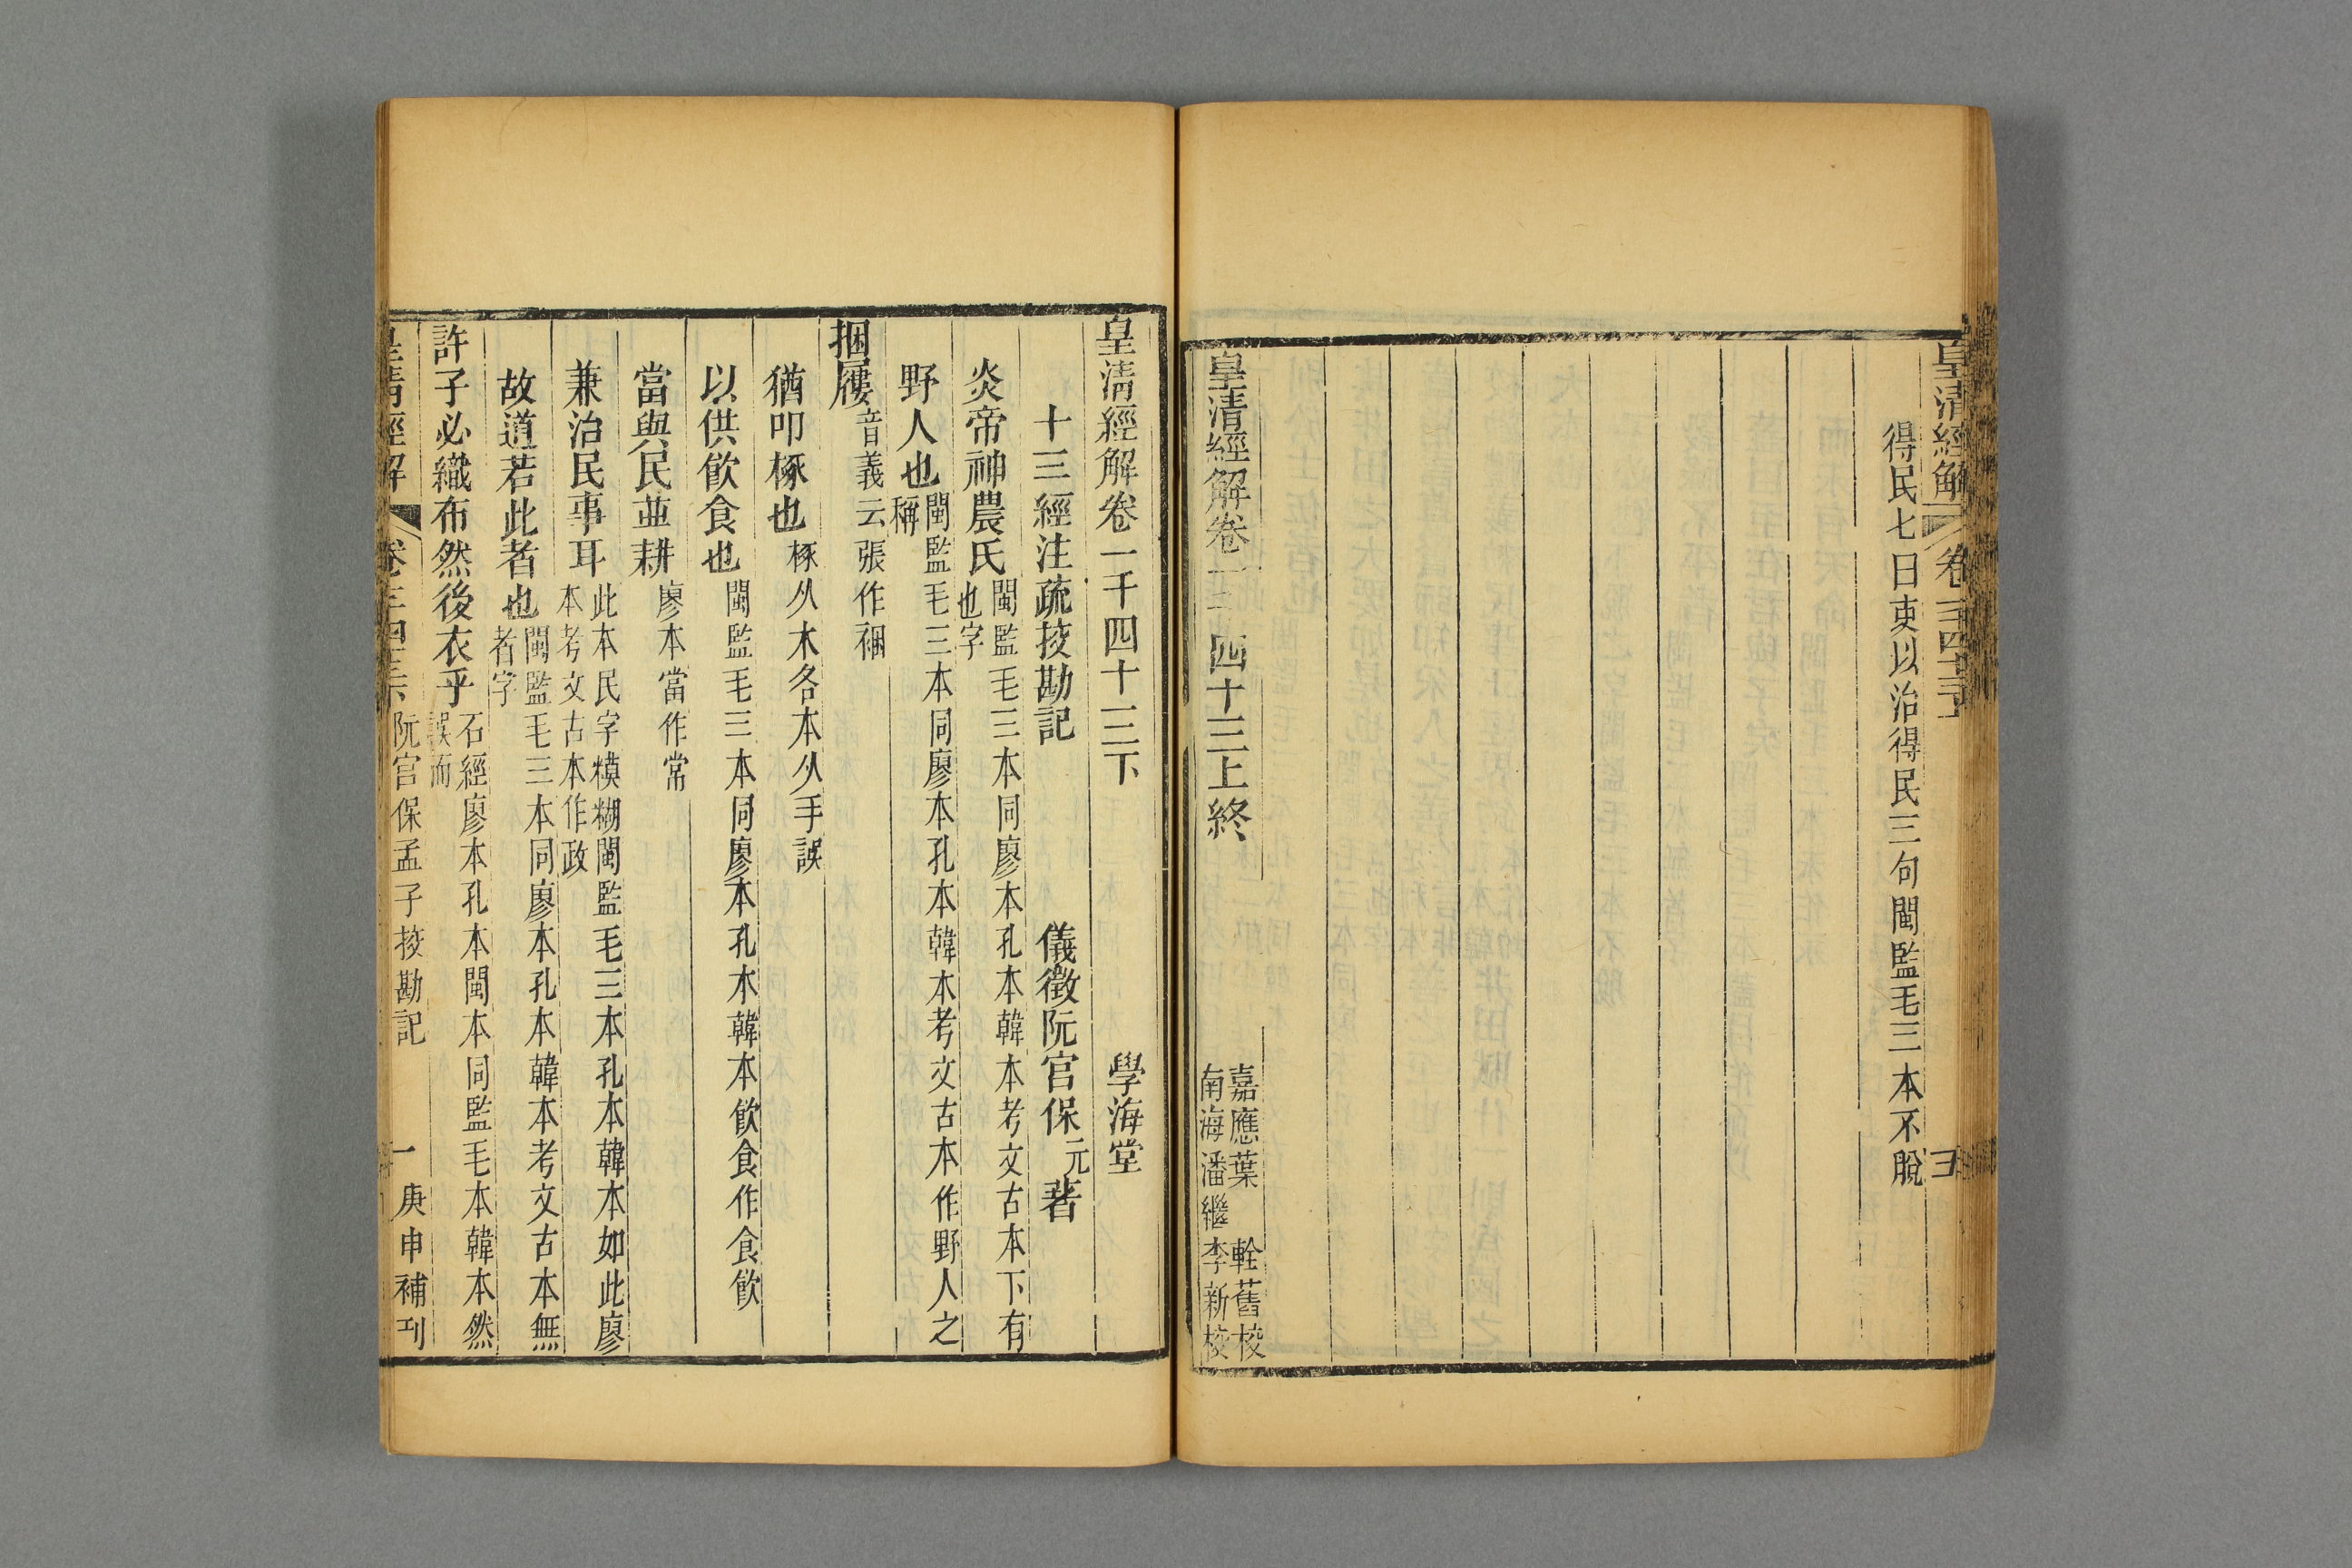 皇清經解
卷
得民七曰吏以治得民三句閩監毛三本不脫
皇清經解卷一千四十三上終
嘉應葉 輇舊挍
南海潘繼李新挍
皇清經解卷一千四十三下 學海堂
十三經注疏挍勘記 儀徵阮宮保元著
炎帝神農氏閩監毛三本同廖本孔本韓本考文古本下有也字
野人也閩監毛三本同廖本孔本韓本考文古本作野人之稱
捆屨音義云張作裍
猶叩椓也椓从木各本从手誤
以供飲食也閩監毛三本同廖本孔本韓本飲食作食飲
當與民並耕廖本當作常
兼治民事耳此本民字模糊閩監毛三本孔本韓本如此廖本考文古本作政
故道若此者也閩監毛三本同廖本孔本韓本考文古本無者字
許子必織布然後衣乎石經廖本孔本閩本同監毛本韓本然誤而
皇清經解 卷 阮宮保孟子挍勘記 一 庚申補刊